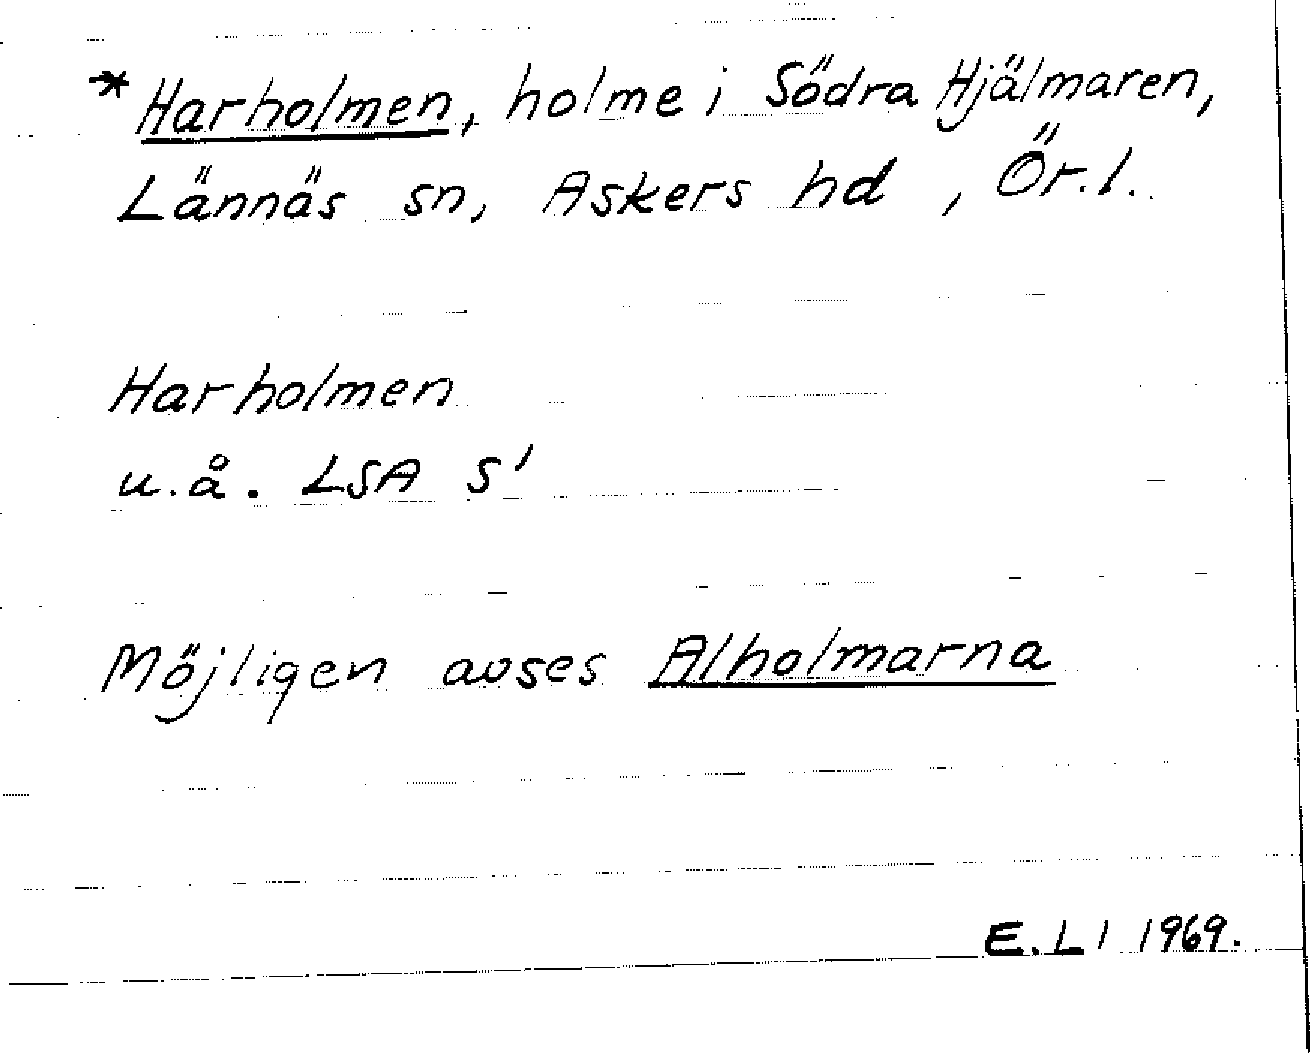 * Harholmen, holme i Södra Hjälmaren,
Lännäs sn, Askers hd, Ör.l.
Harholmen
u.å. LSA S'
Möjligen avses Alholmarna
E. Ll 1969.